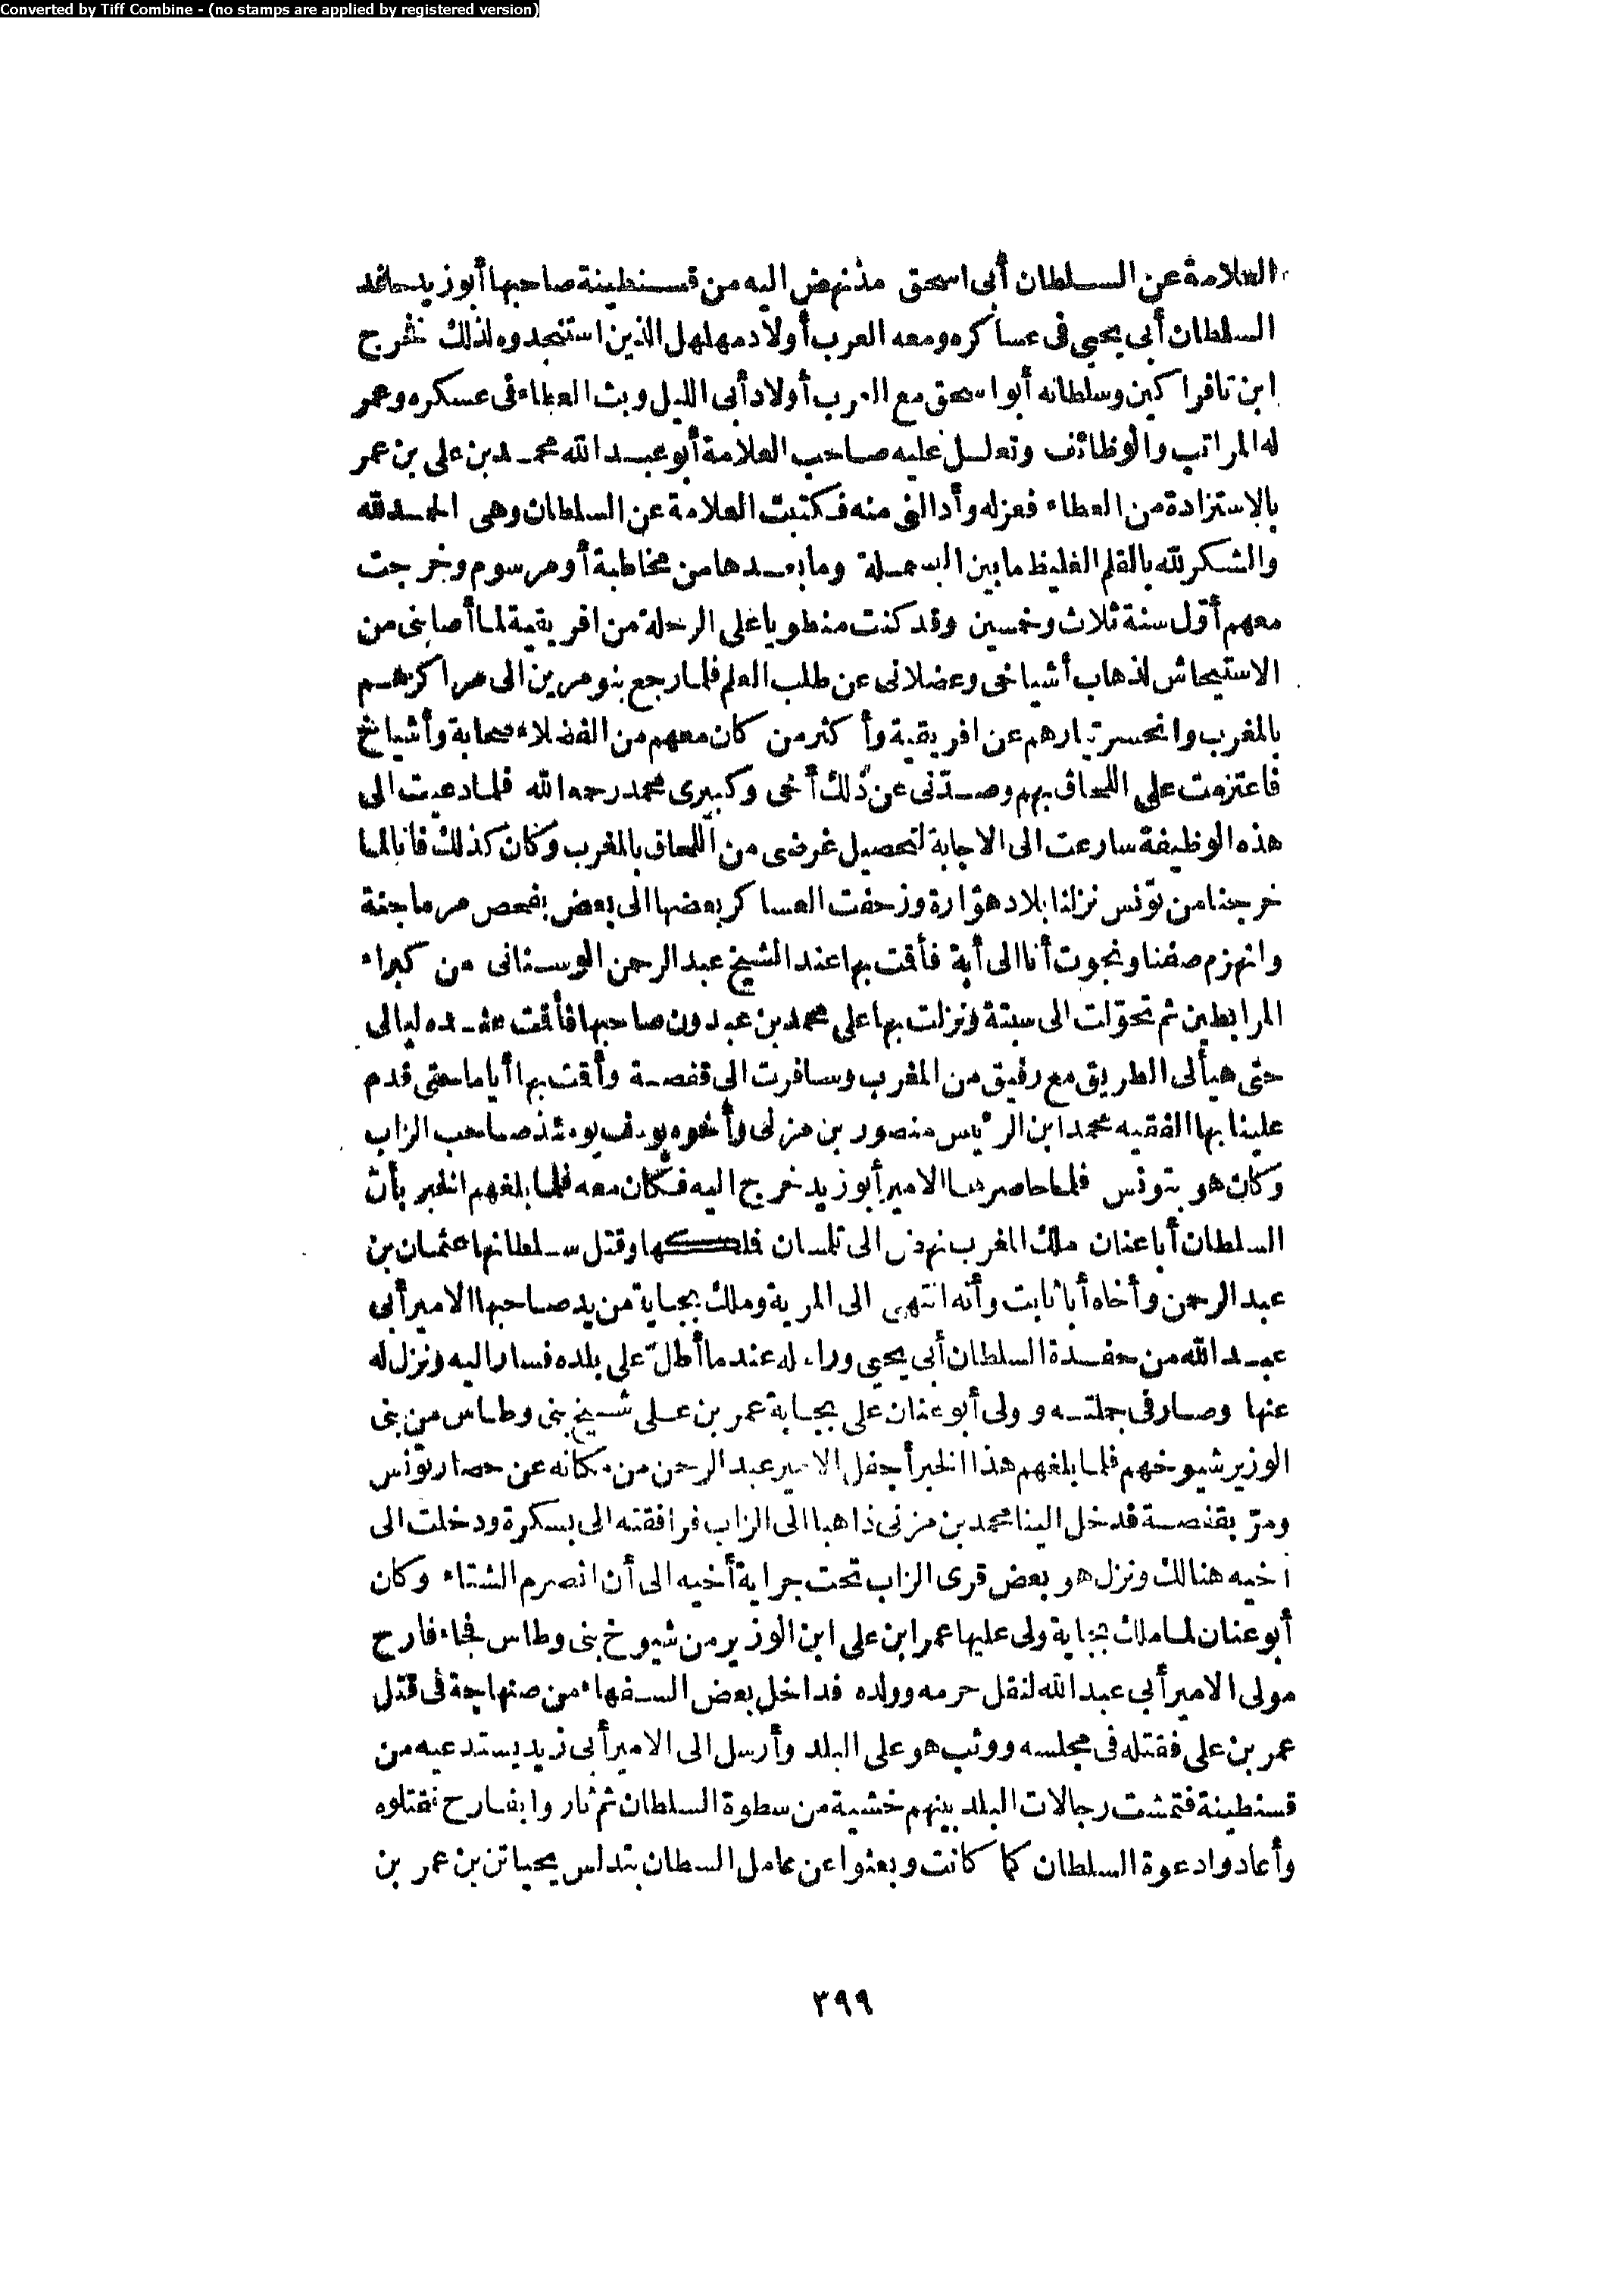 Converted by Tiff Combine - (no stamps are applied by registered version)
العلامة عن السلطان أبى اسحق مذنهض اليه من قسنطينة صاحبها أبو زيد حافد
السلطان أبى يحيى فى عساكره ومعه العرب أولاد مهلهل الذين استنجدوه لذلك فخرج
ابن تافراكين وسلطانه أبو اسحق مع العرب أولاد أبى الليل وبث العطاء فى عسكره وعمر
له المراتب والوظائف وتعلل عليه صاحب العلامة أبو عبد الله محمد بن على بن عمر
بالاستزادة من العطاء فعزله وأدالنى منه فكتبت العلامة عن السلطان وهى الحمد لله
والشكر لله بالقلم الغليظ ما بين البسملة وما بعدها من مخاطبة أو مرسوم وخرجت
معهم أوّل سنة ثلاث وخمسين وقد كنت منطويا على الرحلة من افريقية لما أصابنى من
الاستيحاش لذهاب أشياخى وعضلانى عن طلب العلم فلما رجع بنو مرين الى مراكزهم
بالمغرب وانحسر تيارهم عن افريقية وأكثر من كان معهم من الفضلاء صحابة وأشياخ
فاعتزمت على اللحاق بهم وصدّنى عن ذلك أخى وكبيرى محمد رحمه الله فلما دعيت الى
هذه الوظيفة سارعت الى الاجابة لتحصيل غرضى من اللحاق بالمغرب وكان كذلك فانا لما
خرجنا من تونس نزلنا بلاد هوّارة وزحفت العساكر بعضها الى بعض بفحص مرماجنة
وانهزم صفنا ونجوت أنا الى أبة فأقمت بها عند الشيخ عبد الرحمن الوسنانى من كبراء
المرابطين ثم تحوّلت الى سبتة ونزلت بها على محمد بن عبدون صاحبها فأقمت عنده ليالى
حتى هيألى الطريق مع رفيق من المغرب وسافرت الى قفصة وأقمت بها أياما حتى قدم
علينا بها الفقيه محمد ابن الرئيس منصور بن مزنى وأخوه يوسف يومئذ صاحب الزاب
وكان هو بتونس فلما حاصرها الامير أبو زيد خرج اليه فكان معه فلما بلغهم الخبر بأن
السلطان أبا عنان ملك المغرب نهض الى تلمسان فملكها وقتل سلطانها عثمان بن
عبد الرحمن وأخاه أبا ثابت وأنه انتهى الى المرية وملك بجاية من يد صاحبها الامير أبى
عبد الله من حفدة السلطان أبى يحيى وراء له عند ما أطلّ على بلده فسار اليه ونزل له
عنها وصار فى جملته وولى أبو عنان على بجاية عمر بن على شيخ بنى وطاس من بنى
الوزير شيوخهم فلما بلغهم هذا الخبر أجفل الامير عبد الرحمن من مكانه عن حصار تونس
ومرّ بقفصة فدخل الينا محمد بن مزنى ذاهبا الى الزاب فرافقته الى بسكرة ودخلت الى
أخيه هنالك ونزل هو بعض قرى الزاب تحت جراية أخيه الى أن انصرم الشتاء وكان
أبو عنان لما ملك بجاية ولى عليها عمر ابن على ابن الوزير من شيوخ بنى وطاس فجاء فارح
مولى الامير أبى عبد الله لنقل حرمه وولده فداخل بعض السفهاء من صنهاجة فى قتل
عمر بن على فقتله فى مجلسه ووثب هو على البلد وأرسل الى الامير أبى زيد يستدعيه من
قسنطينة فتمشت رجالات البلد بينهم خشية من سطوة السلطان ثم ثاروا بفارح فقتلوه
وأعادوا دعوة السلطان كما كانت وبعثوا عن عامل السطان بتدلس يحياتن بن عمر بن
٣٩٩